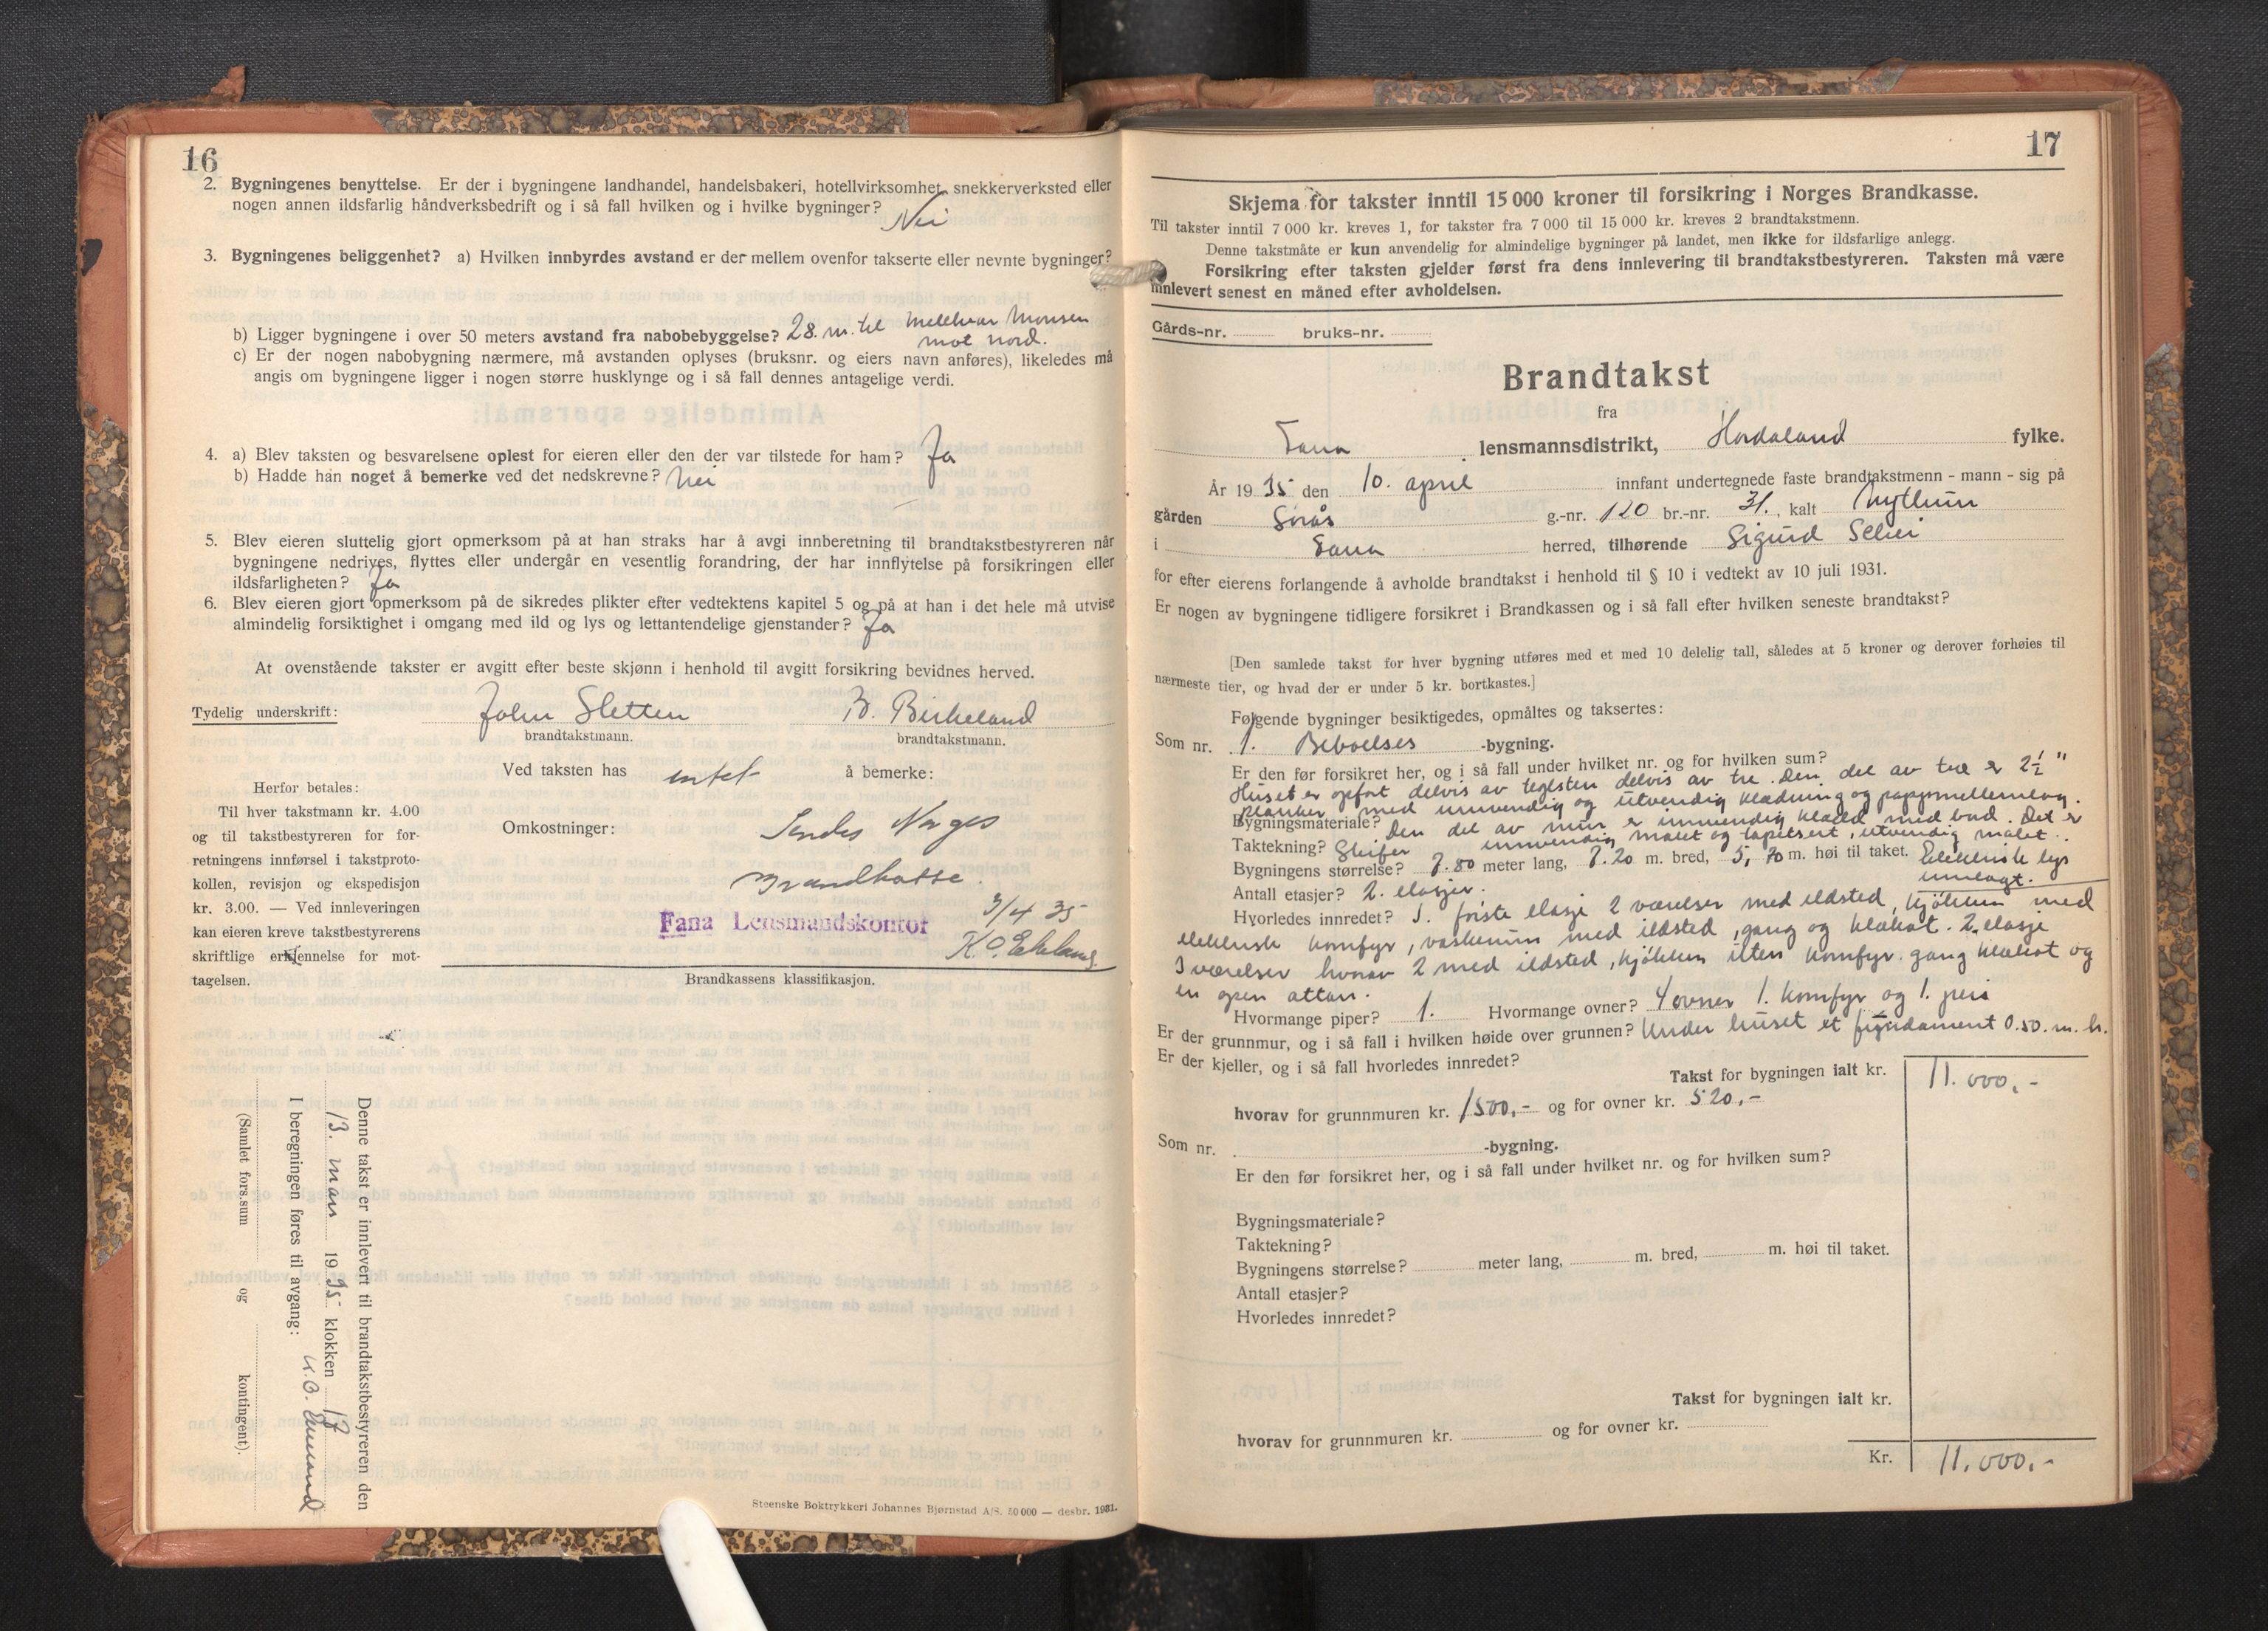 16
2. Bygningenes benyttelse. Er der i bygningene landhandel, handelsbakeri, hotellvirksomhet, snekkerverksted eller
nogen annen ildsfarlig håndverksbedrift og i så fall hvilken og i hvilke bygninger?
Nei
3. Bygningenes beliggenhet? a) Hvilken innbyrdes avstand er der mellem ovenfor takserte eller nevnte bygninger?
b) Ligger bygningene i over 50 meters avstand fra nabobebyggelse? 28. m. til Monsen
mot nord.
c) Er der nogen nabobygning nærmere, må avstanden oplyses (bruksnr. og eiers navn anføres), likeledes må
angis om bygningene ligger i nogen større husklynge og i så fall dennes antagelige verdi.
4. a) Blev taksten og besvarelsene oplest for eieren eller den der var tilstede for ham? Ja
b) Hadde han noget å bemerke ved det nedskrevne? Nei
5. Blev eieren sluttelig gjort opmerksom på at han straks har å avgi innberetning til brandtakstbestyreren når
bygningene nedrives, flyttes eller undergår en vesentlig forandring, der har innflytelse på forsikringen eller
ildsfarligheten? Ja
6. Blev eieren gjort opmerksom på de sikredes plikter efter vedtektens kapitel 5 og på at han i det hele må utvise
almindelig forsiktighet i omgang med ild og lys og lettantendelige gjenstander? Ja
At ovenstående takster er avgitt efter beste skjønn i henhold til avgitt forsikring bevidnes herved.
Tydelig underskrift: John Sletten B. Birkeland
brandtakstmann. brandtakstmann.
Ved taksten has intet å bemerke:
Herfor betales:
Til hver takstmann kr. 4.00
og til takstbestyreren for for-
retningens innførsel i takstproto-
kollen, revisjon og ekspedisjon
kr. 3.00. — Ved innleveringen
kan eieren kreve takstbestyrerens
skriftlige erkjennelse for mot-
tagelsen.
Omkostninger:
Sendes Norges
Brandkasse.
Fana Lensmandskontor
3/4 35
Brandkassens klassifikasjon.
Denne takst er innlevert til brandtakstbestyreren den
13. mars 1935 klokken 13
I beregningen føres til avgang:
(Samlet fors.sum og kontingent).
Steenske Boktrykkeri Johannes Bjørnstad A/S. 50 000 — desbr. 1931.
17
Skjema for takster inntil 15 000 kroner til forsikring i Norges Brandkasse.
Til takster inntil 7 000 kr. kreves 1, for takster fra 7 000 til 15 000 kr. kreves 2 brandtakstmenn.
Denne takstmåte er kun anvendelig for almindelige bygninger på landet, men ikke for ildsfarlige anlegg.
Forsikring efter taksten gjelder først fra dens innlevering til brandtakstbestyreren. Taksten må være
innlevert senest en måned efter avholdelsen.
Gårds-nr. bruks-nr.
Brandtakst
fra
Fana lensmannsdistrikt, Hordaland fylke.
År 1935 den 10. april innfant undertegnede faste brandtakstmenn - mann - sig på
gården Sørås g.-nr. 120 br.-nr. 31., kalt
i Fana herred, tilhørende Sigurd
for efter eierens forlangende å avholde brandtakst i henhold til § 10 i vedtekt av 10 juli 1931.
Er nogen av bygningene tidligere forsikret i Brandkassen og i så fall efter hvilken seneste brandtakst?
[Den samlede takst for hver bygning utføres med et med 10 delelig tall, således at 5 kroner og derover forhøies til
nærmeste tier, og hvad der er under 5 kr. bortkastes.]
Følgende bygninger besiktigedes, opmåltes og taksertes:
Som nr. 1. Beboelses -bygning.
Er den før forsikret her, og i så fall under hvilket nr. og for hvilken sum?
Huset er opført delvis av teglsten delvis av tre. Den del av tre er 2½"
planker med innvendig og utvendig klædning og papp mellemlag.
Bygningsmateriale? Den del av mur er innvendig klædd med bord. Det er
innvendig malet og tapetsert, utvendig malet.
Taktekning? Skifer
Bygningens størrelse? 7.80 meter lang, 7.20 m. bred, 5,70 m. høi til taket. Elektriske lys
innlagt.
Antall etasjer? 2. etasjer.
Hvorledes innredet? I. første etasje 2 værelser med ildsted, kjøkken med
elektrisk komfyr, vaskerum med ildsted, gang og klækot. 2. etasje
3 værelser hvorav 2 med ildsted, kjøkken uten komfyr. gang klækot og
en open altan.
Hvormange piper? 1. Hvormange ovner? 4 ovner 1. komfyr og 1. peis
Er der grunnmur, og i så fall i hvilken høide over grunnen? Under huset et fundament 0.50. m. h.
Er der kjeller, og i så fall hvorledes innredet?
Takst for bygningen ialt kr. 11.000,-
hvorav for grunnmuren kr. 1500,- og for ovner kr. 520,-
Som nr. -bygning.
Er den før forsikret her, og i så fall under hvilket nr. og for hvilken sum?
Bygningsmateriale?
Taktekning?
Bygningens størrelse? meter lang, m. bred, m. høi til taket.
Antall etasjer?
Hvorledes innredet?
Takst for bygningen ialt kr.
hvorav for grunnmuren kr. og for ovner kr.
Kr. 11.000,-